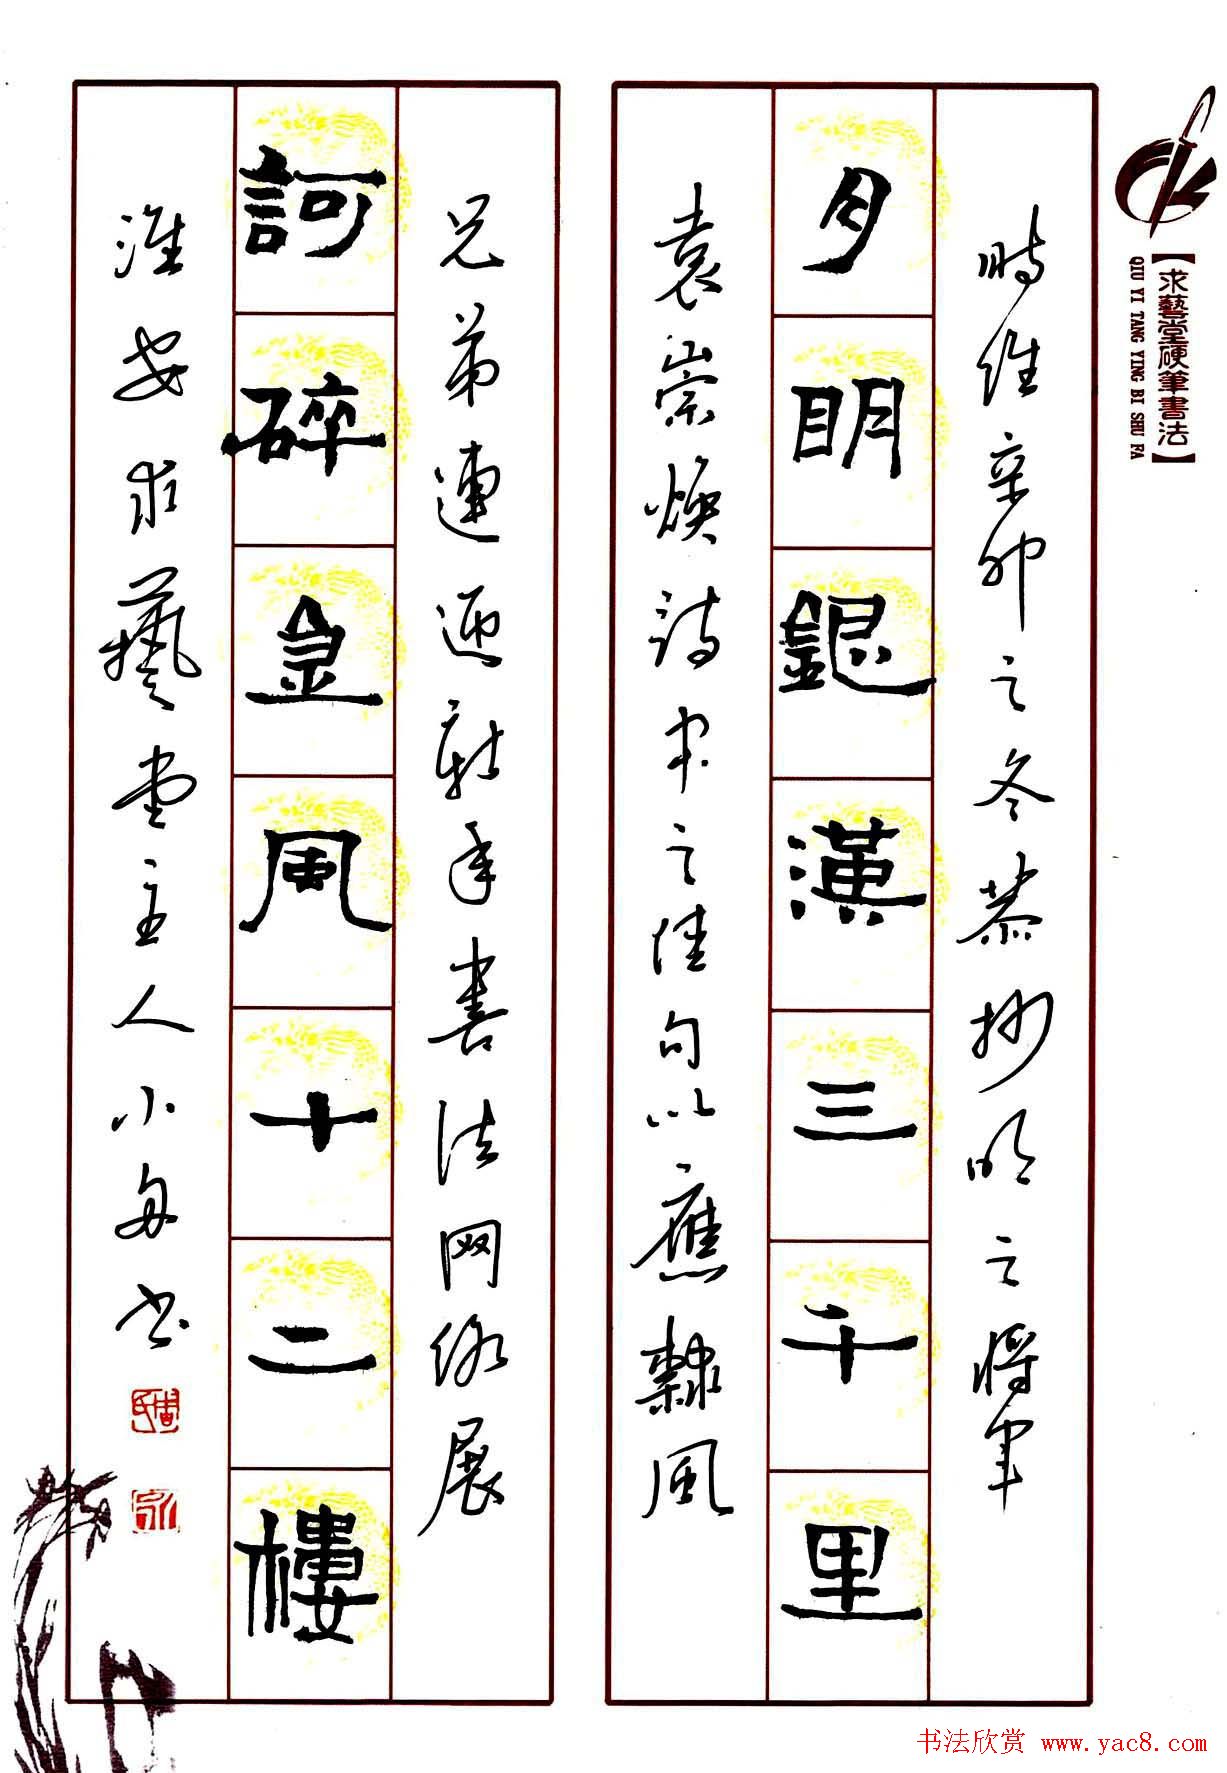 【求藝堂硬筆書法】
QIU YI TANG YING BI SHU FA
時維辛卯之冬恭抄明之將軍
月明銀漢三千里
袁崇煥詩中之佳句以應隸風
兄弟連迎新年書法网络展
訶碎金風十二樓
淮安求藝堂主人小舟书
书法欣赏 www.yac8.com